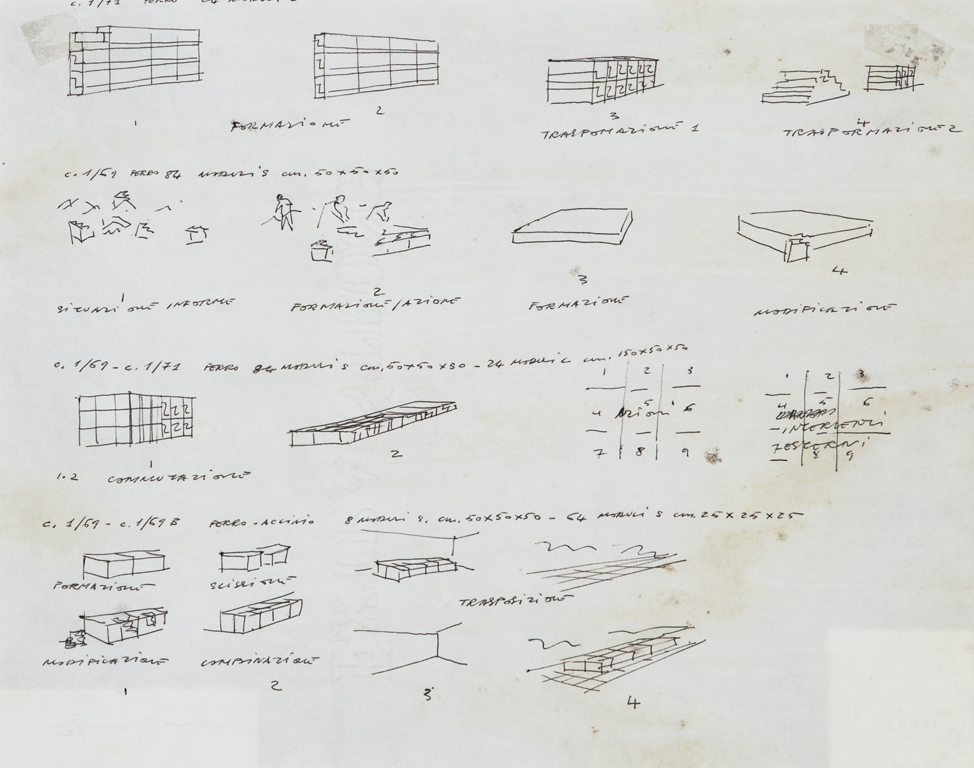 c. 1/71 FERRO 24 MODULI
1 2 3 4
FORMAZIONE TRASFOMAZIONE 1 TRASFORMAZIONE 2
c. 1/69 FERRO 84 MODULI S cm. 50x50x50
1 2 3 4
SITUAZIONE INFORME FORMAZIONE/AZIONE FORMAZIONE MODIFICAZIONE
c. 1/69 - c. 1/71 FERRO 84 MODULI S cm. 50x50x50 - 24 MODULI L cm. 150x50x50
1 2 3 1 2 3
4 5 6 4 5 6
AZIONI
INTERVENTI
ESTERNI
7 8 9 7 8 9
1 2
1.2 COMMUTAZIONE
c. 1/69 - c. 1/69 B FERRO - ACCIAIO 8 MODULI S. cm. 50x50x50 - 64 MODULI S cm. 25x25x25
FORMAZIONE SCISSIONE
TRASPOSIZIONE
MODIFICAZIONE COMBINAZIONE
1 2 3 4